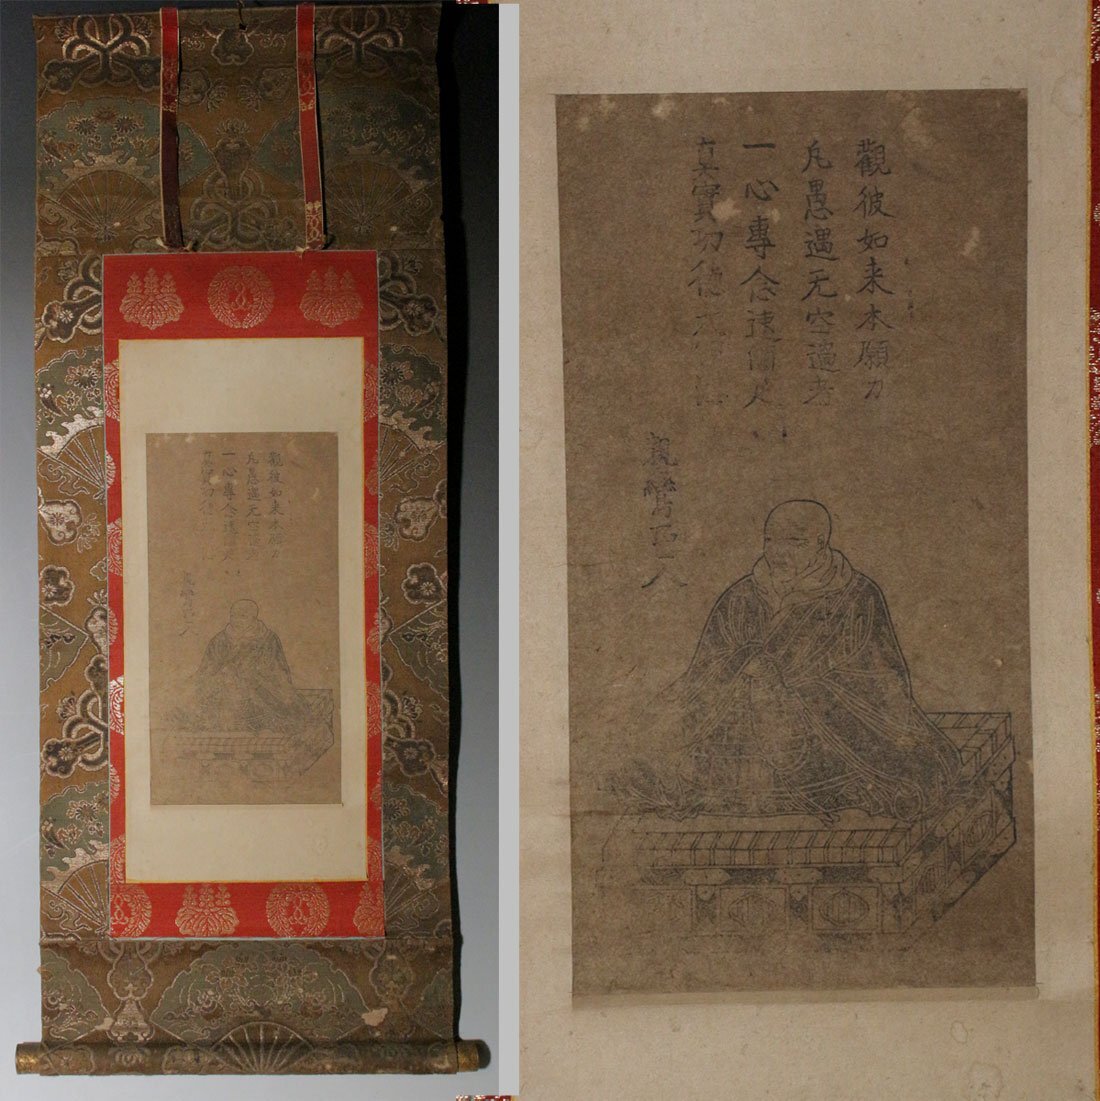 觀彼如来本願力
凡愚遇无空過者
一心專念速滿足
真實功德大
親鸞聖人